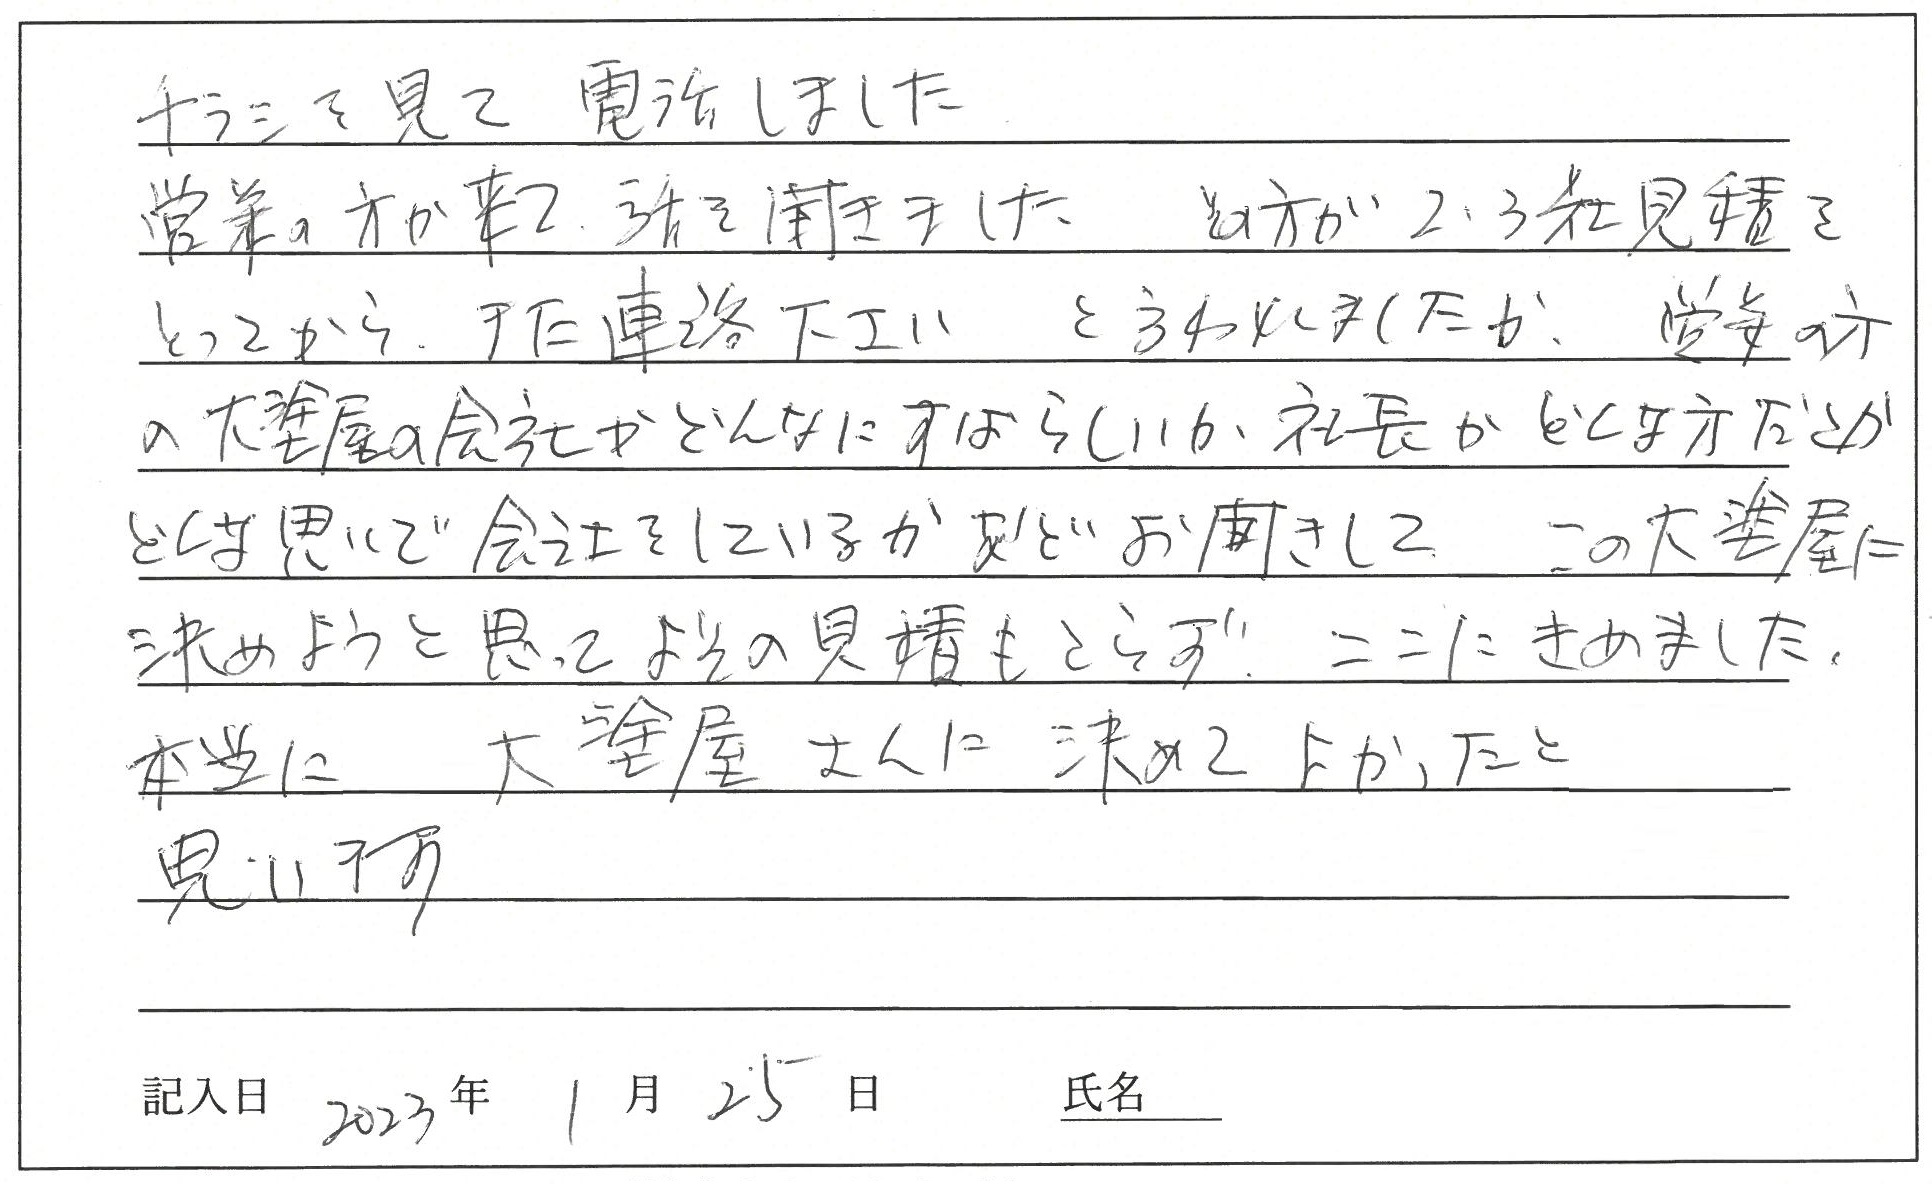 チラシを見て 電話しました
営業の方が来て、話を聞きました その方が2、3社見積を
とってから、また連絡下さい と言われましたが、 営業の方
の大塗屋の会社がどんなにすばらしいか、社長がどんな方だとか
どんな思いで会社をしているかなどお聞きして この大塗屋に
決めようと思ってよその見積もとらず、ここにきめました。
本当に 大塗屋さんに決めてよかったと
思います
記入日 2023年 1月 25日 氏名